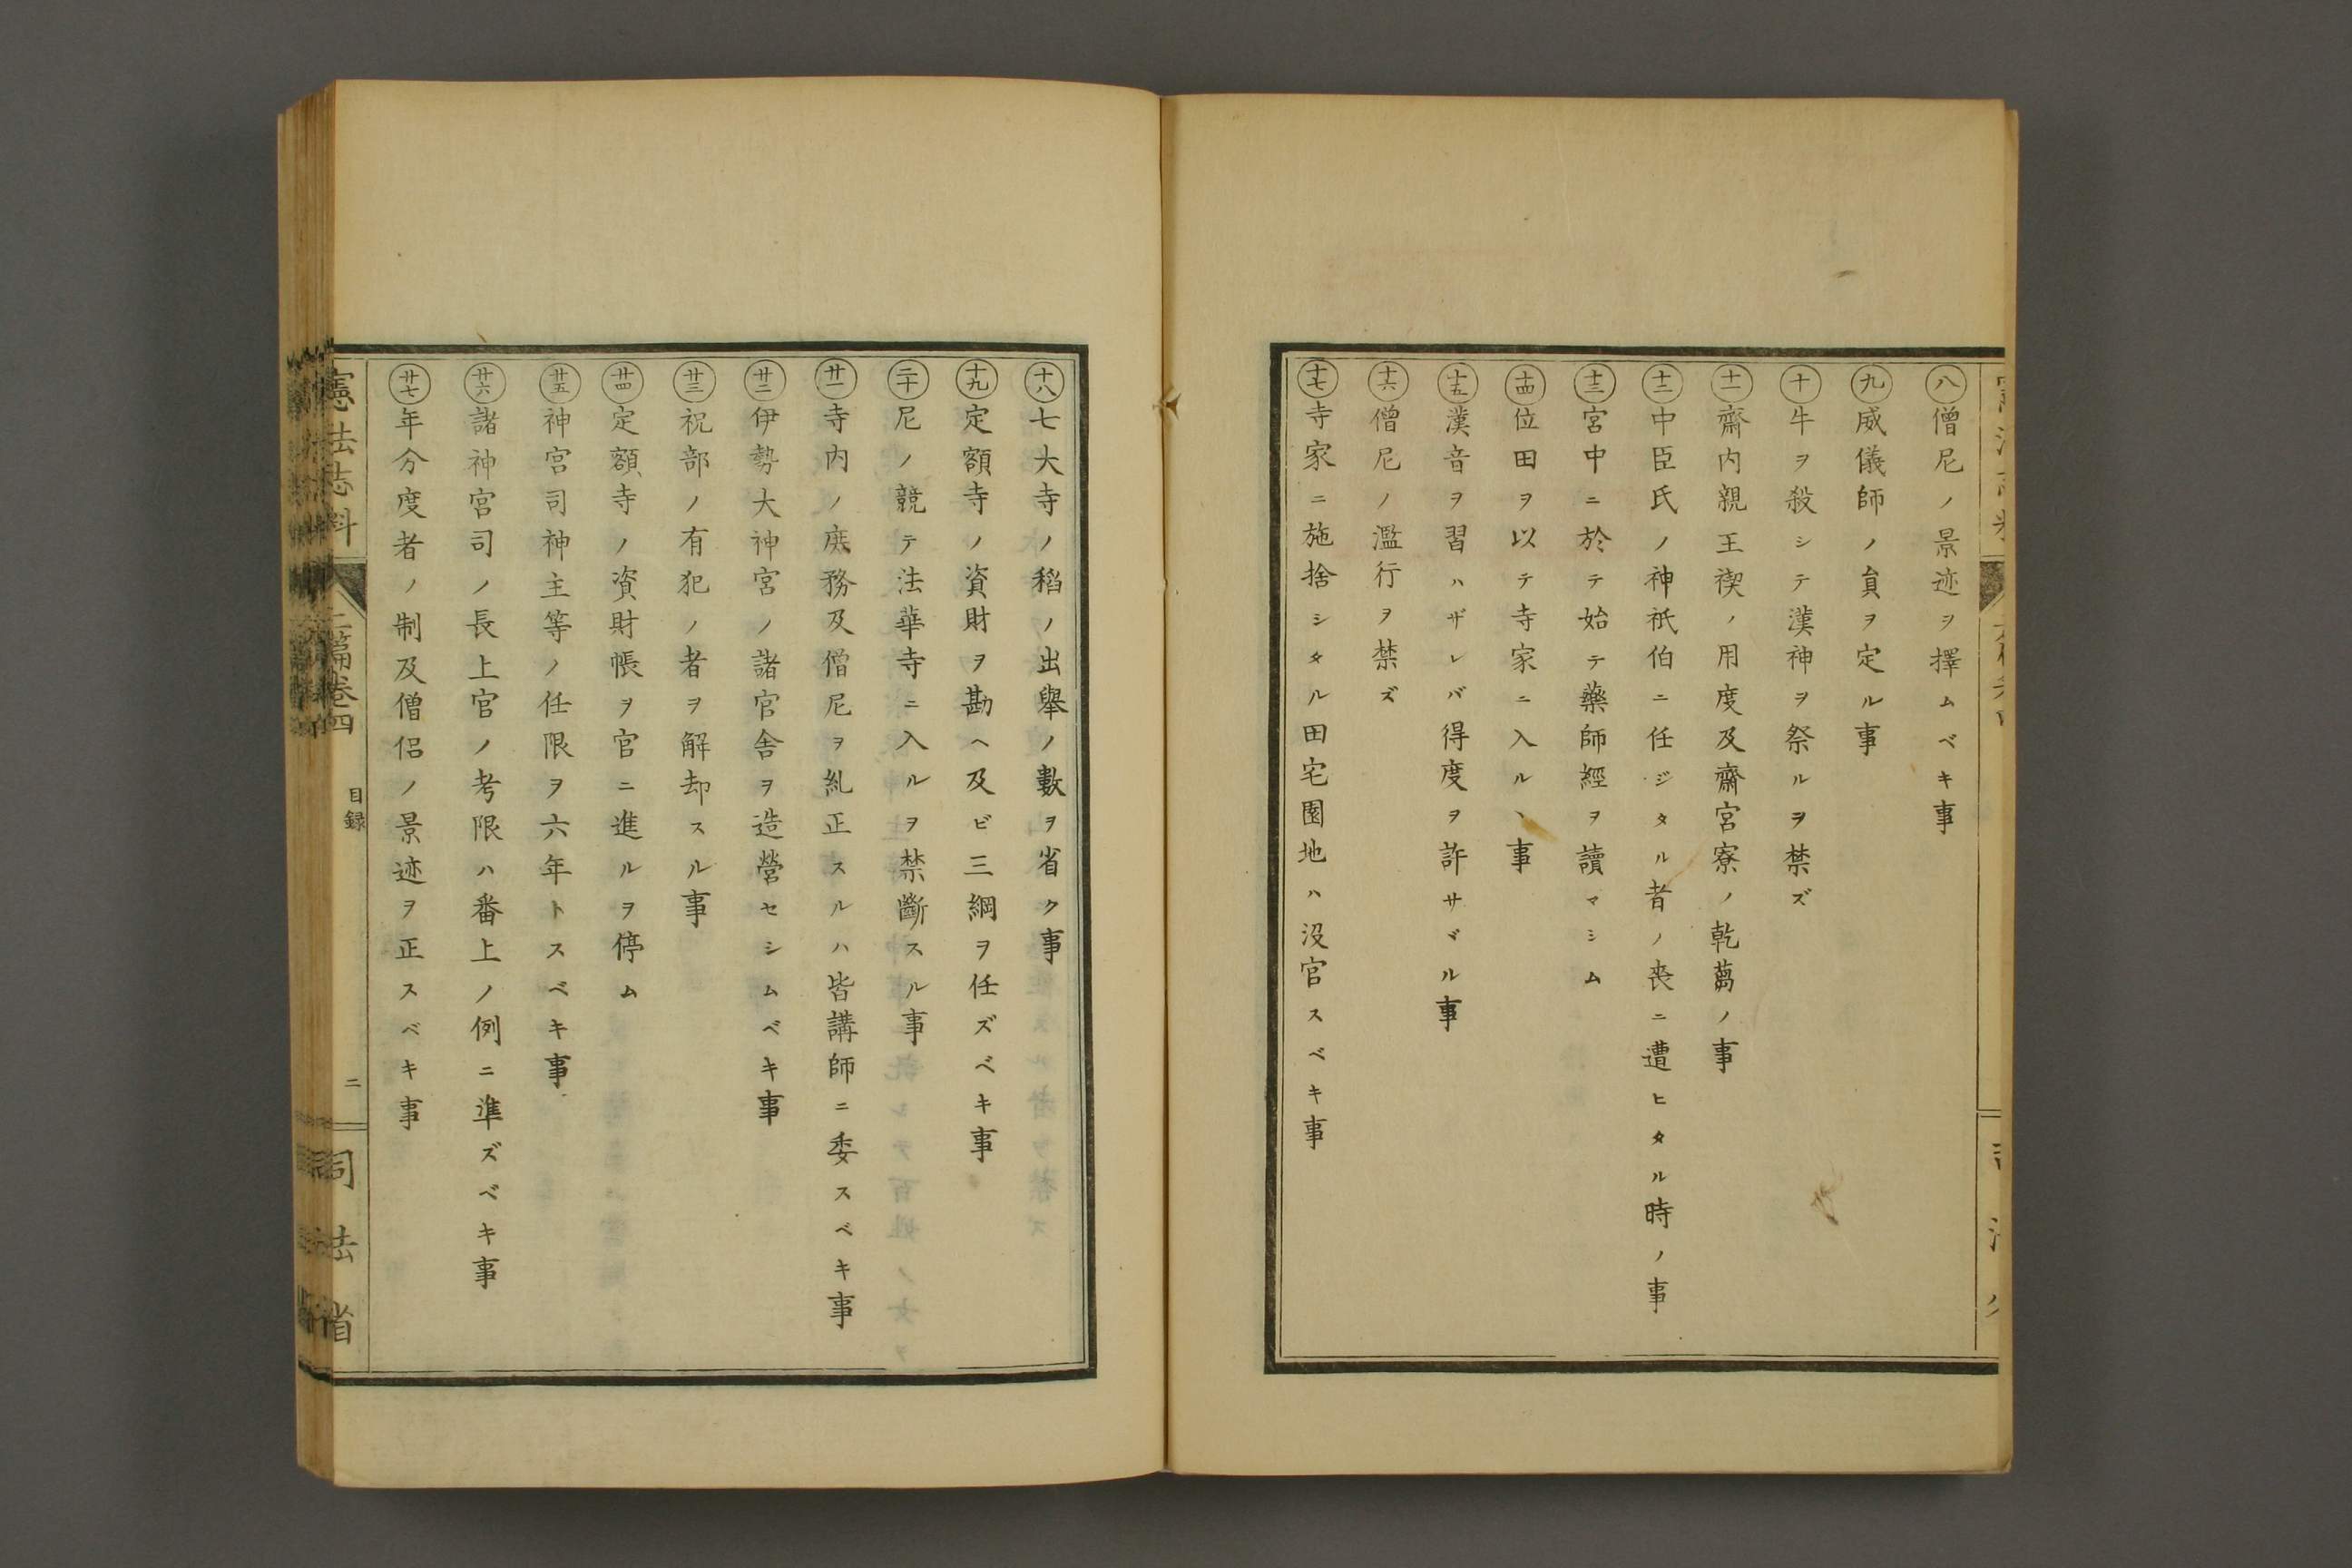 八 僧尼ノ景迹ヲ擇ムベキ事
九 威儀師ノ員ヲ定ル事
十 牛ヲ殺シテ漢神ヲ祭ルヲ禁ズ
十一 齋内親王禊ノ用度及齋宮寮ノ乾蒭ノ事
十二 中臣氏ノ神祇伯ニ任ジタル者ノ喪ニ遭ヒタル時ノ事
十三 宮中ニ於テ始テ藥師經ヲ讀マシム
十四 位田ヲ以テ寺家ニ入ルヽ事
十五 漢音ヲ習ハザレバ得度ヲ許サヾル事
十六 僧尼ノ濫行ヲ禁ズ
十七 寺家ニ施捨シタル田宅園地ハ沒官スベキ事
十八 七大寺ノ稻ノ出擧ノ數ヲ省ク事
十九 定額寺ノ資財ヲ勘ヘ及ビ三綱ヲ任ズベキ事
二十 尼ノ競テ法華寺ニ入ルヲ禁斷スル事
廿一 寺内ノ庶務及僧尼ヲ糺正スルハ皆講師ニ委スベキ事
廿二 伊勢大神宮ノ諸官舍ヲ造營セシムベキ事
廿三 祝部ノ有犯ノ者ヲ解却スル事
廿四 定額寺ノ資財帳ヲ官ニ進ルヲ停ム
廿五 神宮司神主等ノ任限ヲ六年トスベキ事
廿六 諸神宮司ノ長上官ノ考限ハ番上ノ例ニ準ズベキ事
廿七 年分度者ノ制及僧侶ノ景迹ヲ正スベキ事
憲法志料 二篇卷四 目録 二 司法省